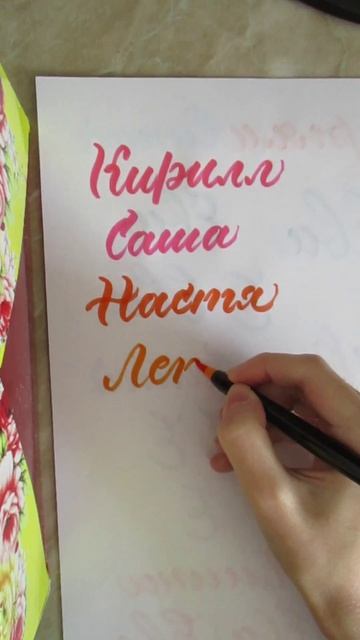 Кирилл
Саша
Настя
Лег